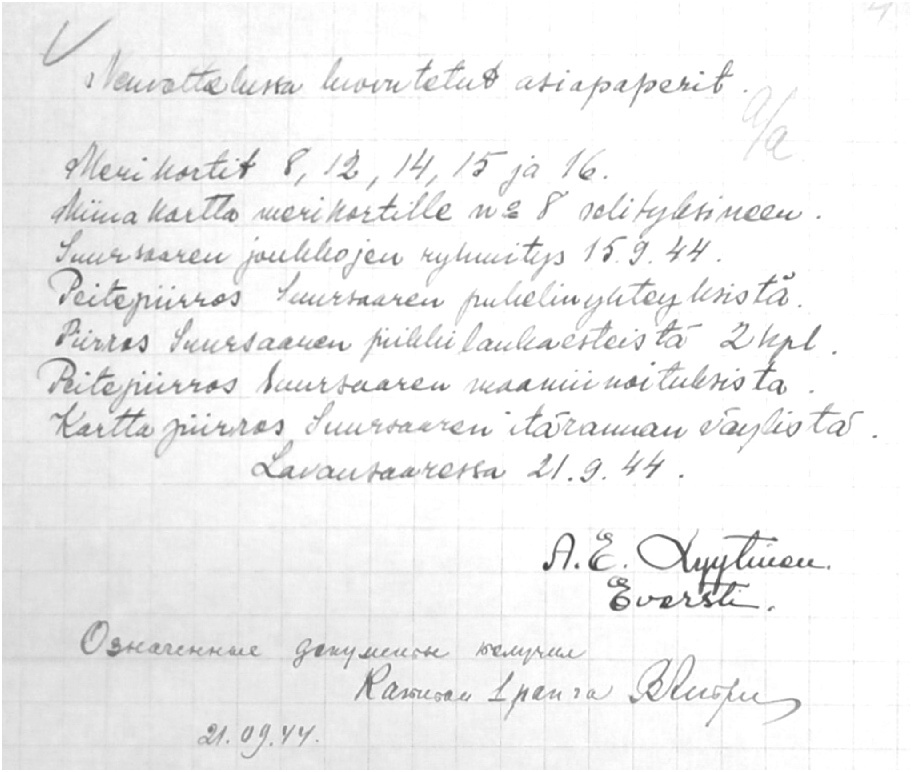 Neuvottelussa luovutetut asiapaperit.
a/a
Merikortit 8, 12, 14, 15 ja 16.
Miinakartta merikortille no 8 selityksineen.
Suursaaren joukkojen ryhmitys 15.9.44.
Peitepiirros Suursaaren puhelinyhteyksistä.
Piirros Suursaaren piikkilankaesteistä 2 kpl.
Peitepiirros Suursaaren maamiinoituksista.
Karttapiirros Suursaaren itärannan väylistä.
Lavansaaressa 21.9.44.
A. E. Kyytinen.
Eversti.
Означенные документы получил
Капитан 1 ранга
21.09.44.